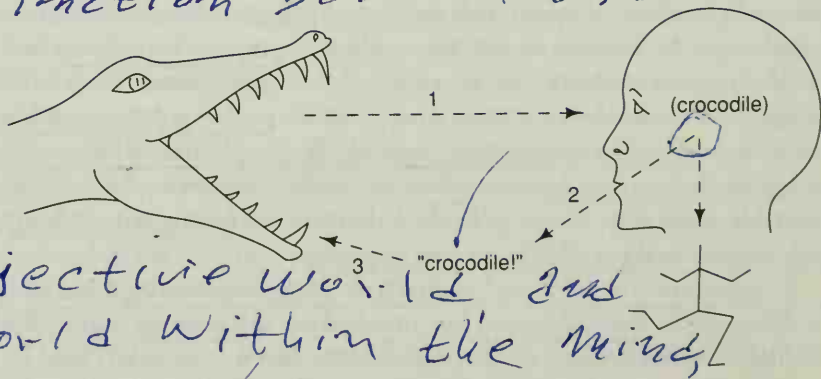 1
(crocodile)
2
3
"crocodile!"
jective world, and
orld within the mind,